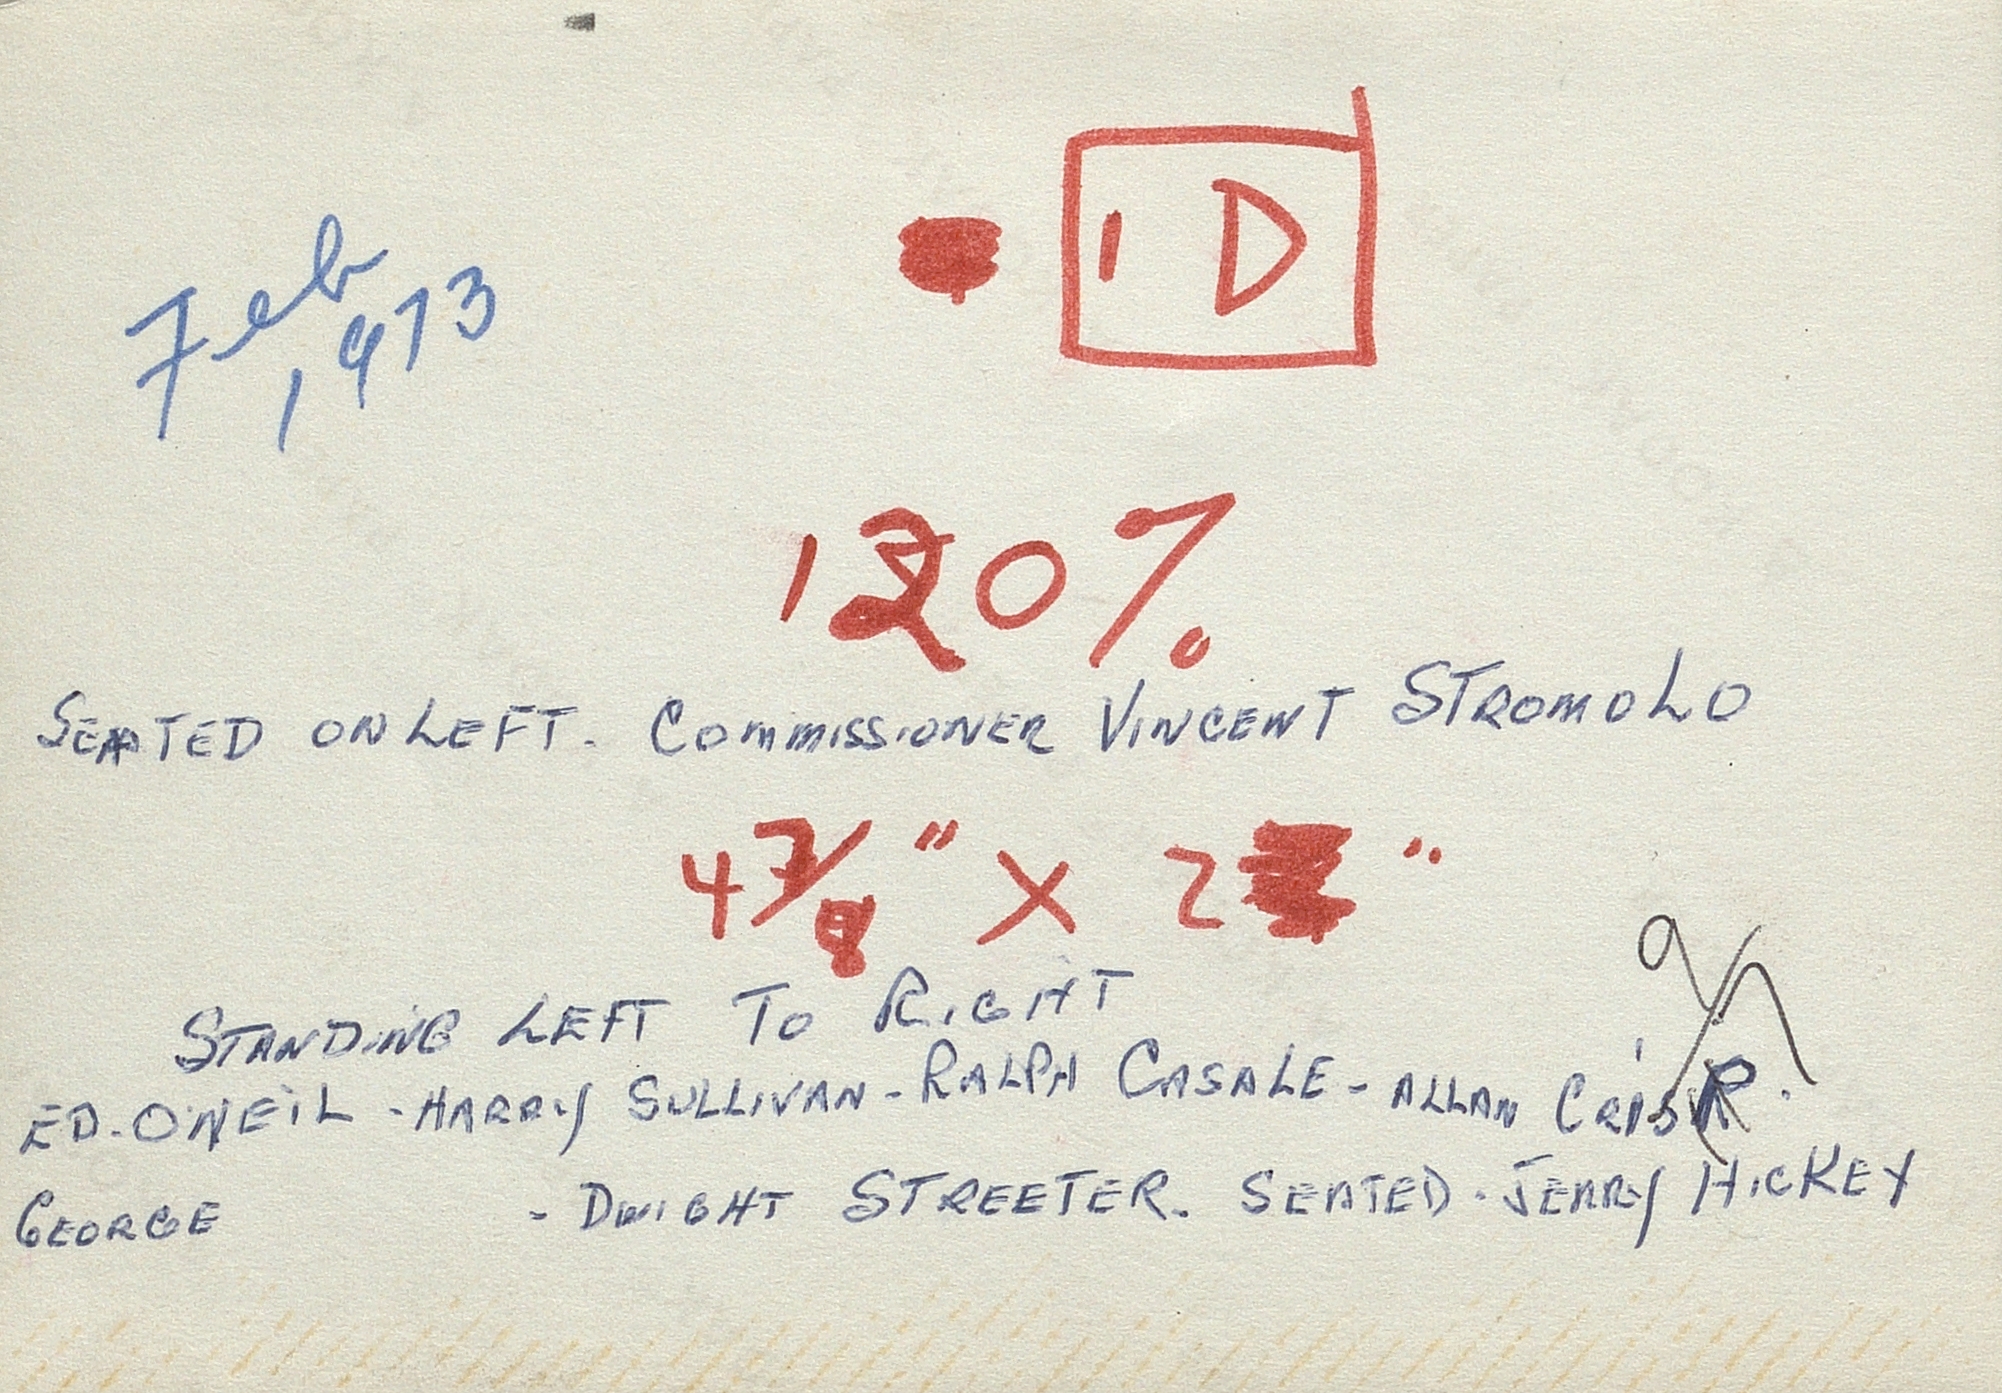 1 D
Feb
1973
120%
SEATED ON LEFT. COMMISSIONER VINCENT STROMOLO
4 7/8" X 2 "
STANDING LEFT TO RIGHT
ED. O'NEIL - HARRY SULLIVAN - RALPH CASALE - ALLAN
GEORGE - DWIGHT STREETER. SEATED - JERRY HICKEY